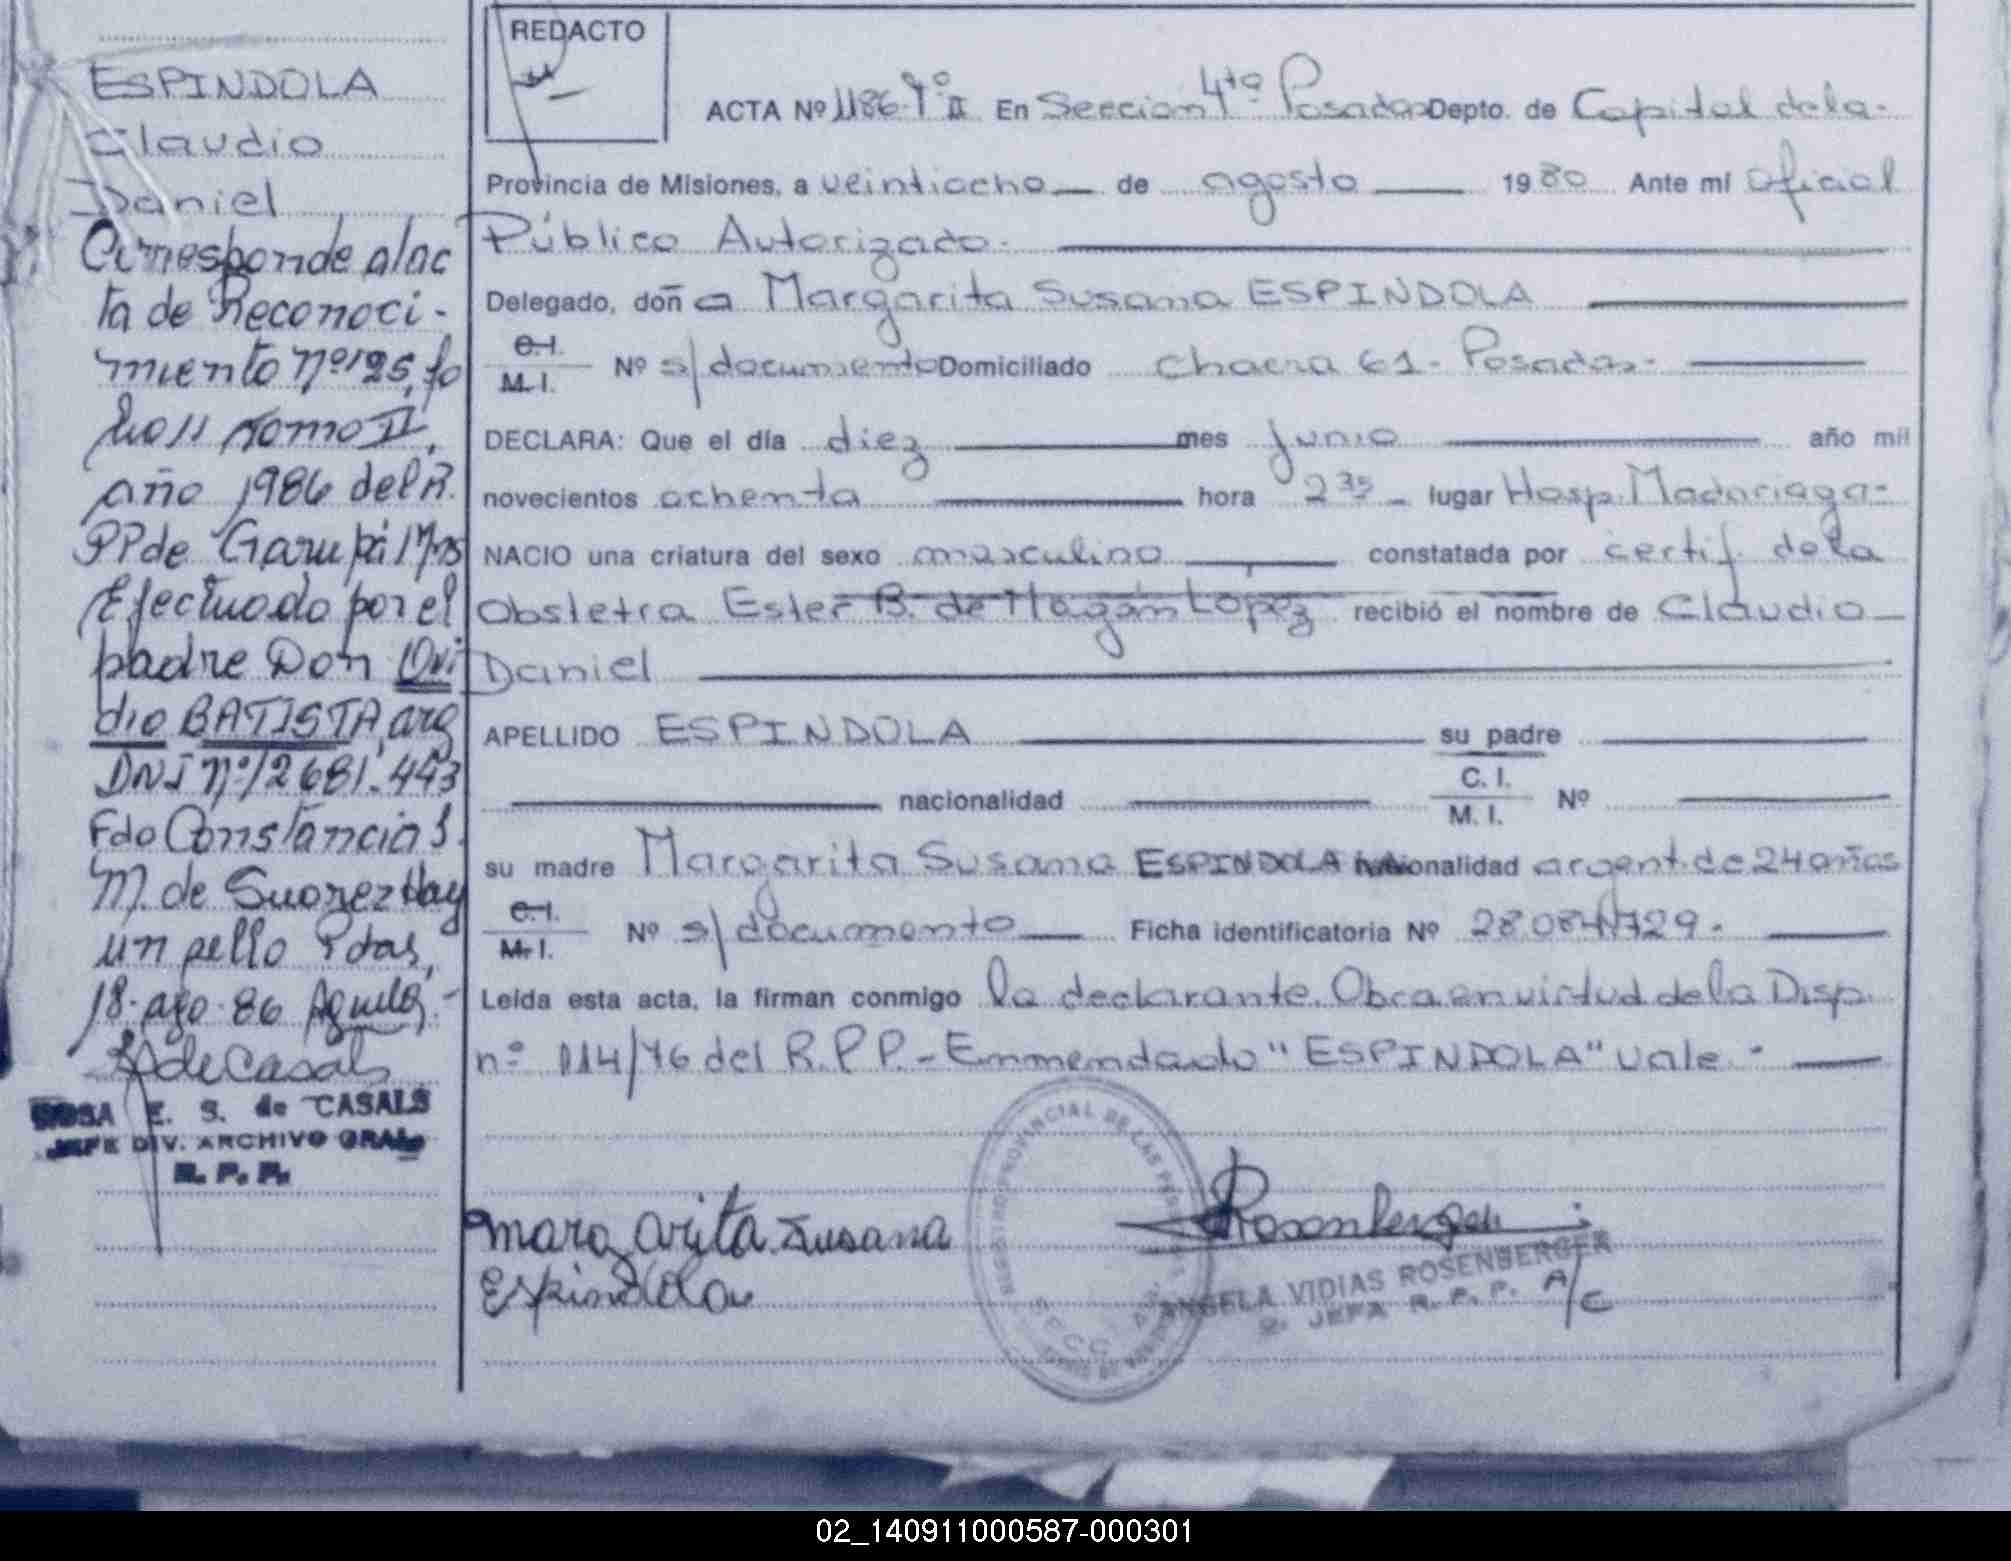 ESPINDOLA
Claudio
Daniel
Corresponde al ac
ta de Reconoci-
miento Nº 125, fo
lio 11 tomo II,
año 1986 del R.
PP de Garupá Mns
Efectuado por el
padre Don Ovi
dio BATISTA, arg
DNI Nº 12681.443
Fdo Constancia S.
M. de Suarez Hay
un sello Pdas,
18-ago-86 Aguila.-
de Casals
ROSA E. S. de CASALS
JEFE DIV. ARCHIVO GRAL
R. P. P.
REDACTO
ACTA Nº 1186 Tº II En Sección 4ta Posadas Depto. de Capital de la-
Provincia de Misiones, a veintiocho de agosto 1980 Ante mí Oficial
Público Autorizado.
Delegado, doña Margarita Susana ESPINDOLA
C.I.
M.I. Nº s/documento Domiciliado Chacra 61 - Posadas-
DECLARA: Que el día diez mes Junio año mil
novecientos ochenta hora 2 35 lugar Hosp. Madariaga-
NACIO una criatura del sexo masculino constatada por certif. de la
Obstetra Ester B. de Magán López recibió el nombre de Claudio
Daniel
APELLIDO ESPINDOLA su padre
nacionalidad C. I.
M. I. Nº
su madre Margarita Susana ESPINDOLA nacionalidad argent. de 24 años
C.I.
M.I. Nº s/documento Ficha identificatoria Nº 28.084.729.
Leída esta acta, la firman conmigo la declarante. Obra en virtud de la Disp.
nº 114/76 del R.P.P.- Enmendado "ESPINDOLA" vale.-
REGISTRO PROVINCIAL DE LAS PERSONAS
SECC. 4ta
Margarita Susana
Espindola
Rosenberger
ANGELA VIDIAS ROSENBERGER
2. JEFA R. P. P. A/C
02_140911000587-000301